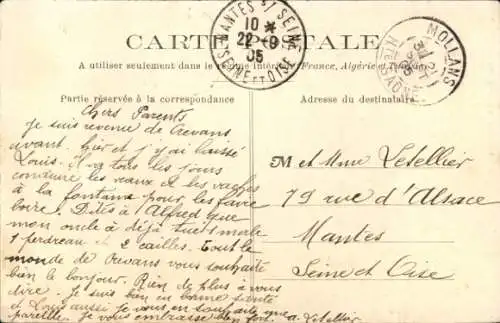 CARTE POSTALE
A utiliser seulement dans le régime intérieur, France, Algérie et Tunisie
Partie réservée à la correspondance
Adresse du destinataire
MANTES S/ SEINE
10 *
22 -9
05
SEINE ET OISE
MOLLANS
Chers Parents
Je suis revenue de Crevans
avant hier et j'y ai laissé
Louis. Il va tous les jours
conduire les veaux et les vaches
à la fontaine pour les faire
boire. Dites à Alfred que
mon oncle à déjà tué 1 male
1 perdreau et 2 cailles. Tout le
monde de Crevans vous souhaite
bien le bonjour. Rien de plus à vous
dire. Je suis bien en bonne santé
et Louis aussi je vous en souhaite une
pareille. Je vous embrasse bien fort. a. Letellier
M et Mme Letellier
79 rue d'Alsace
Mantes
Seine et Oise